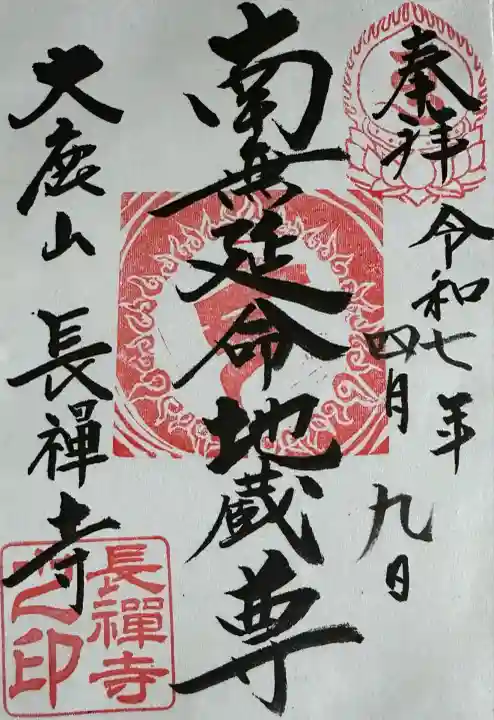 奉拝
令和七年
四月九日
南無延命地蔵尊
大鹿山 長禅寺
長禪寺
之印